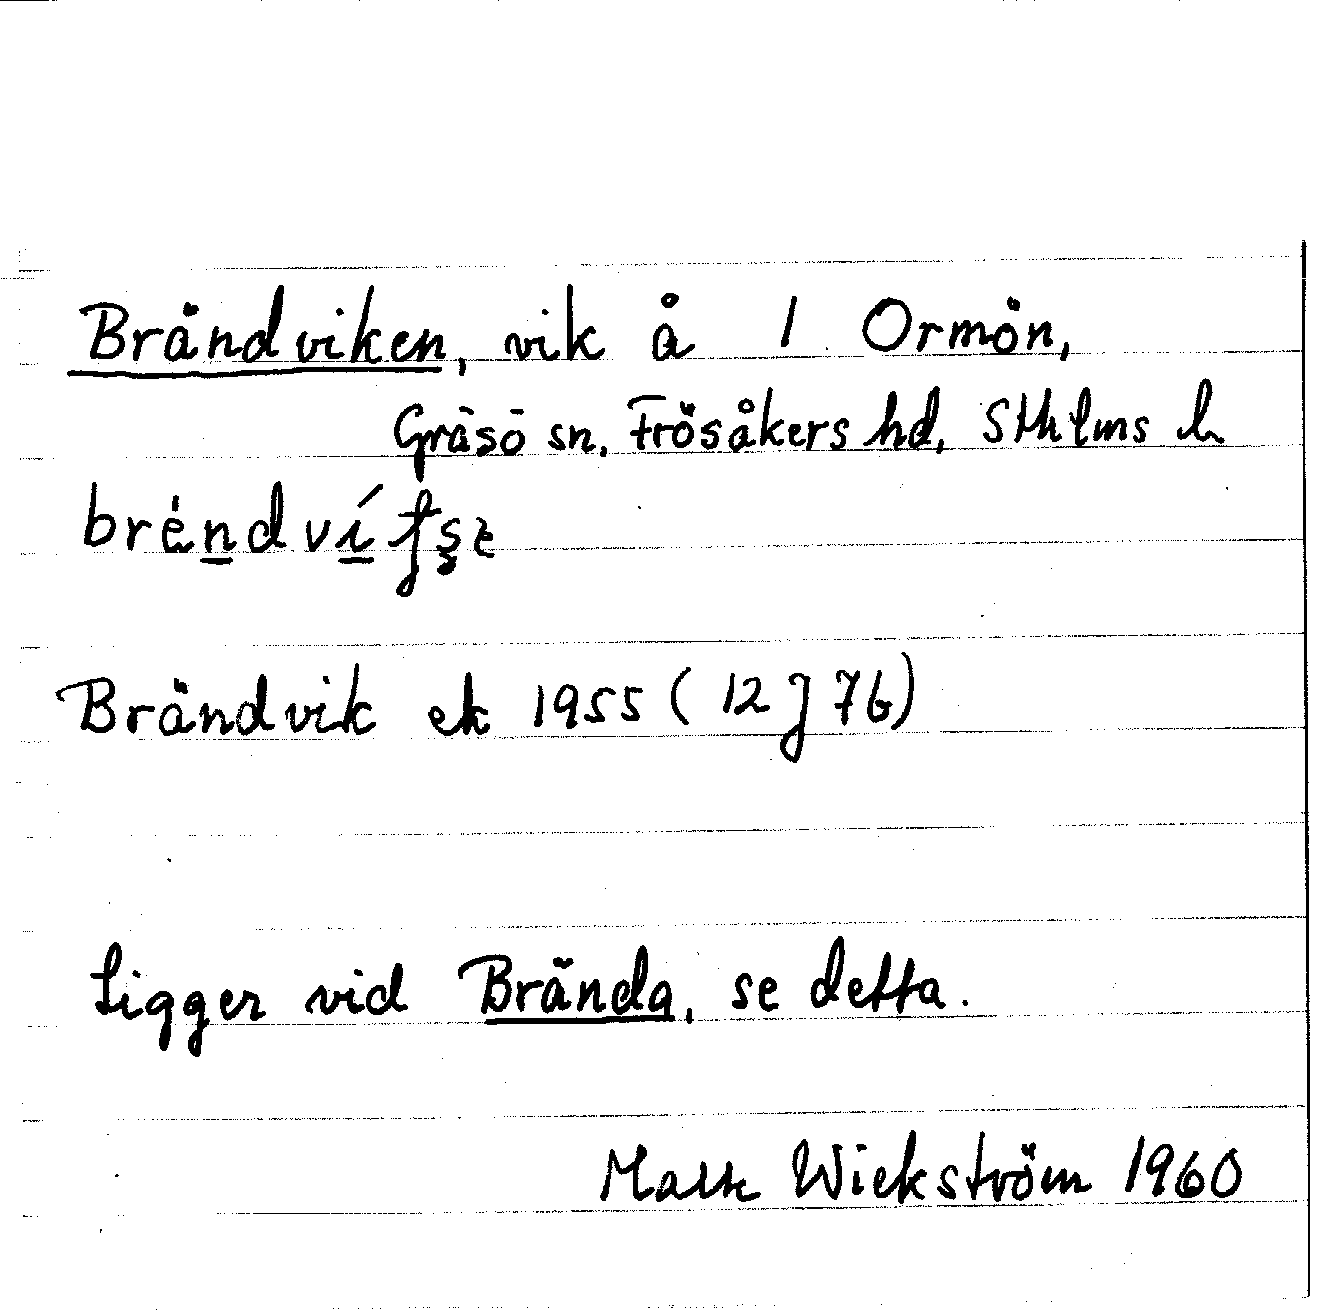 Brändviken, vik å 1 Ormön,
Gräsö sn, Frösåkers hd, Sthlms l
Brändvik ek 1955 (12 J 7b)
Ligger vid Brända, se detta.
Wickström 1960